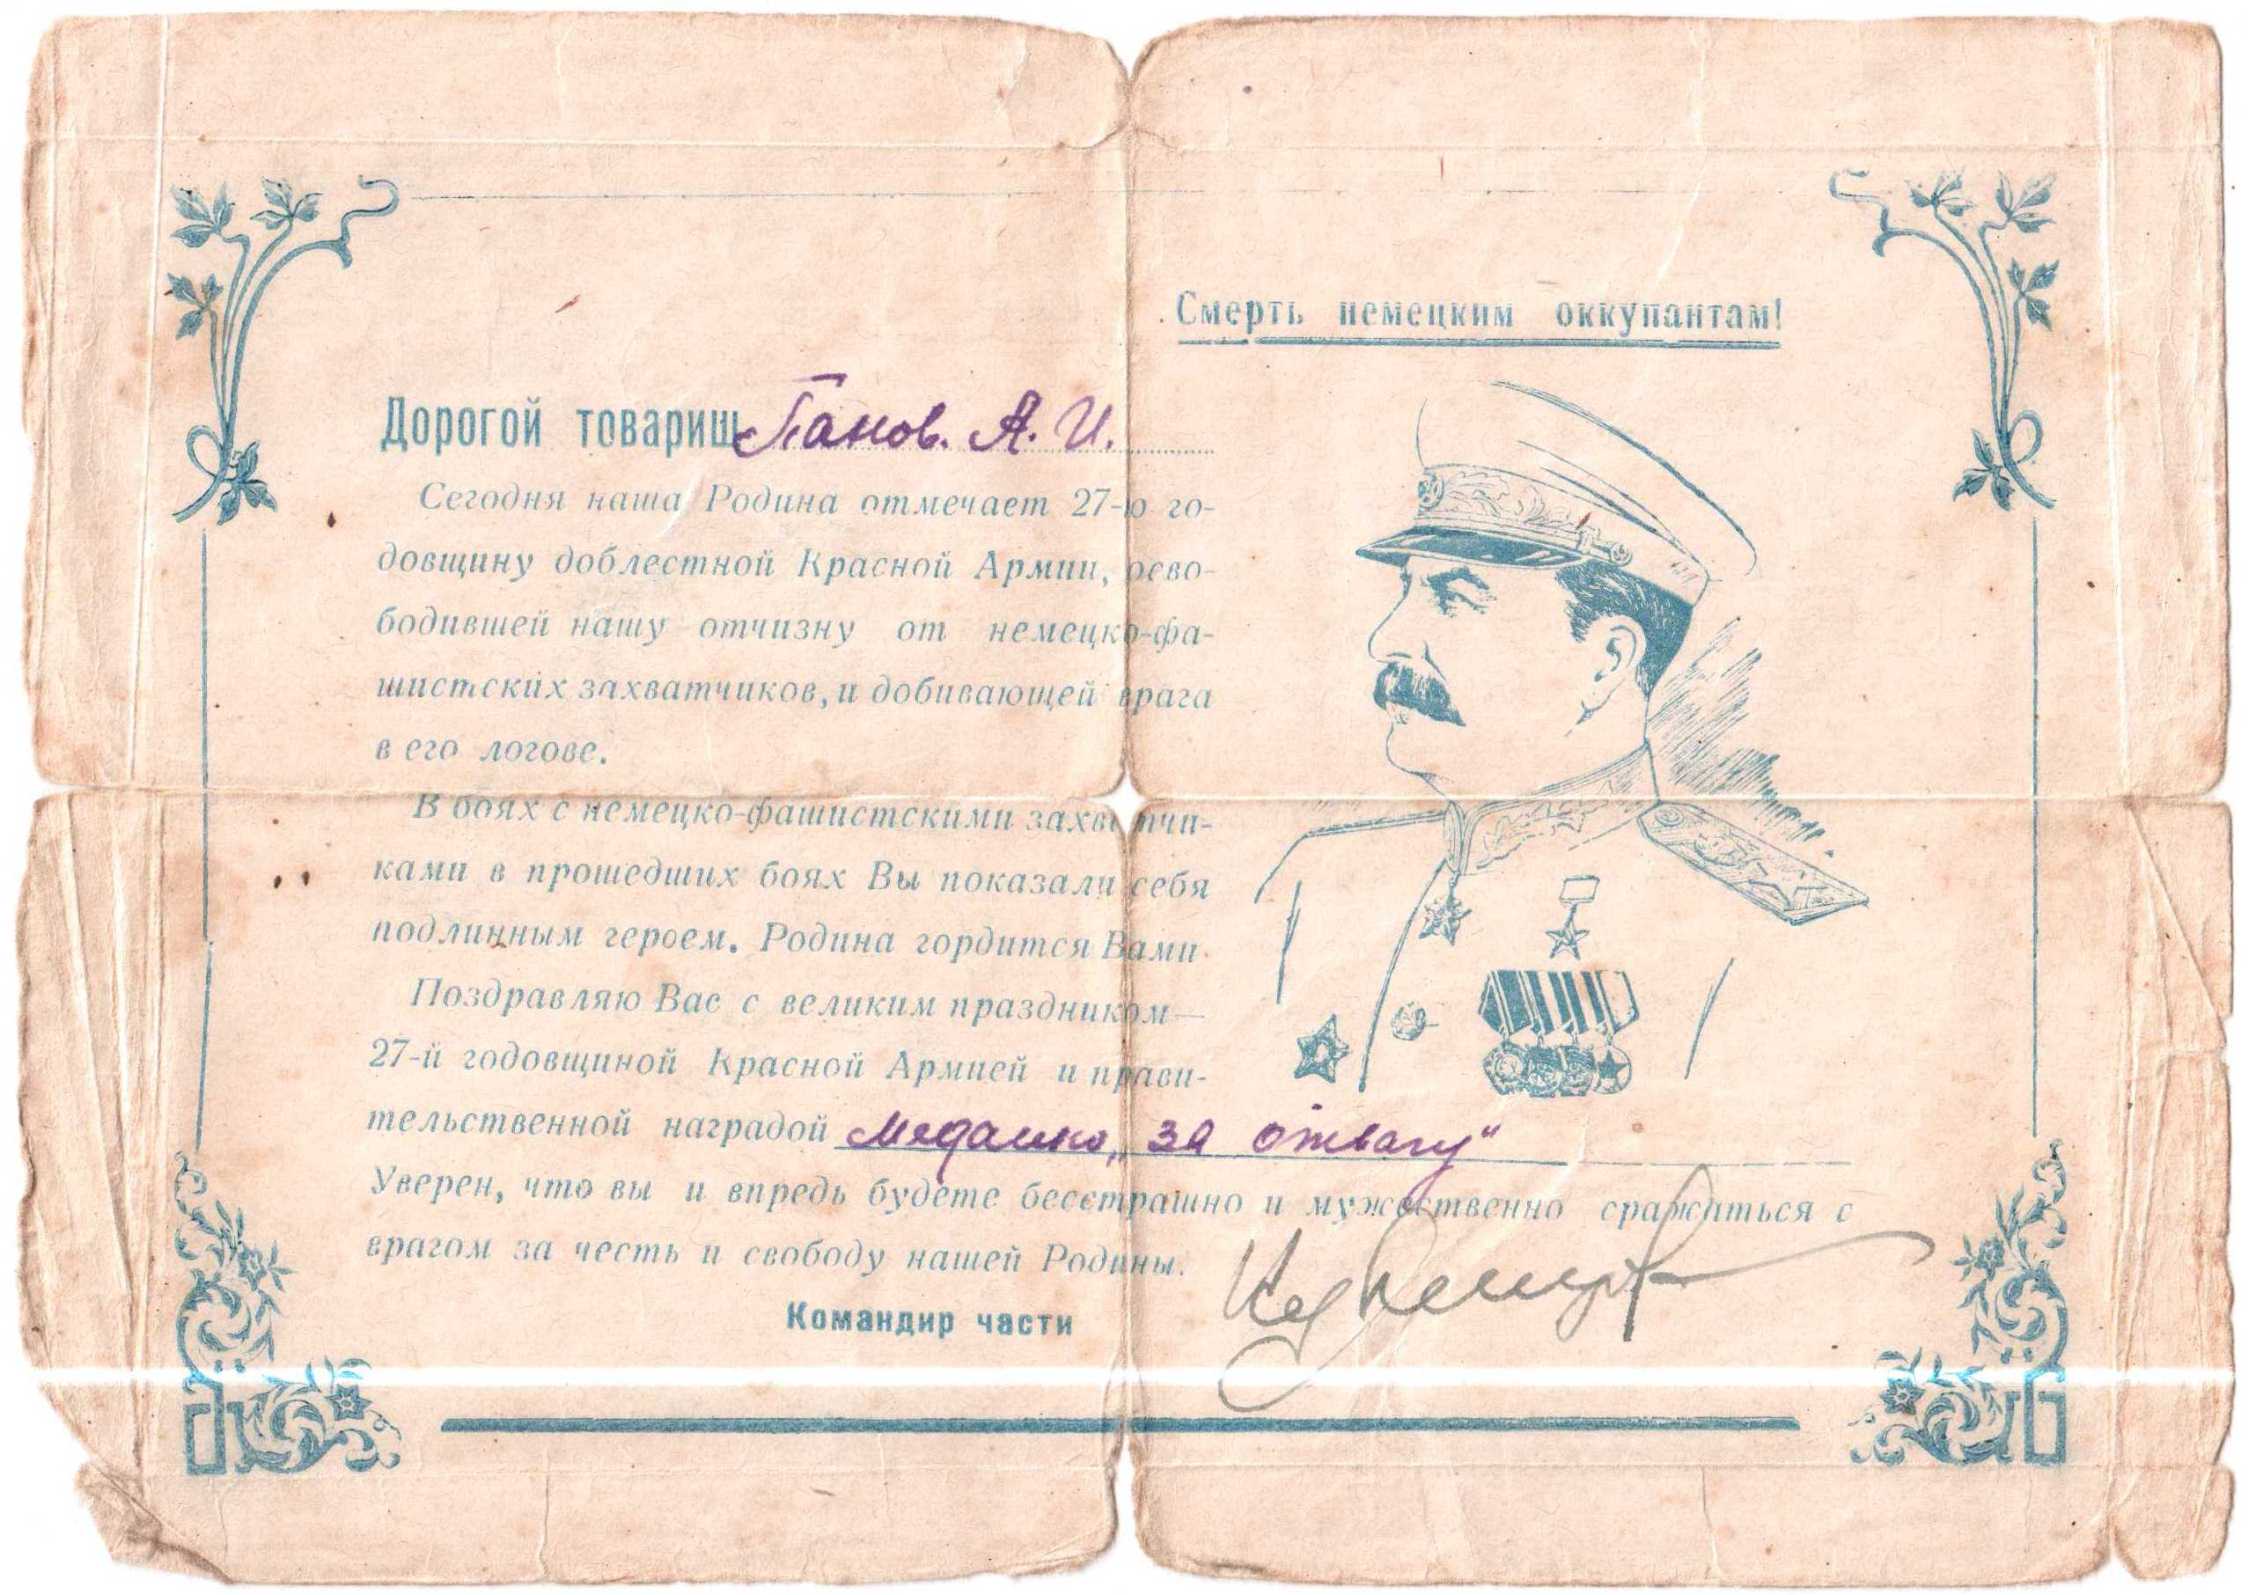 Смерть немецким оккупантам!
Дорогой товарищ Панов. А. И.
Сегодня наша Родина отмечает 27-ю го-
довщину доблестной Красной Армии, осво-
бодившей нашу отчизну от немецко-фа-
шистских захватчиков, и добивающей врага
в его логове.
В боях с немецко-фашистскими захватчи-
ками в прошедших боях Вы показали себя
подлинным героем. Родина гордится Вами.
Поздравляю Вас с великим праздником—
27-й годовщиной Красной Армией и прави-
тельственной наградой медалью „за отвагу"
Уверен, что вы и впредь будете бесстрашно и мужественно сражаться с
врагом за честь и свободу нашей Родины.
Командир части